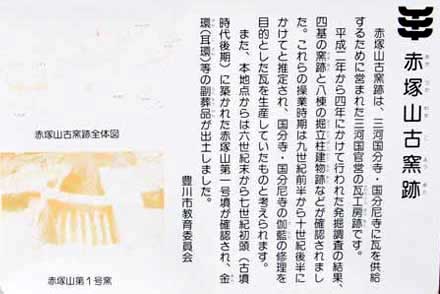 赤塚山古窯跡
赤塚山古窯跡は、三河国分寺・国分尼寺に瓦を供給
するために営まれた三河国官営の瓦工房跡です。
平成二年から四年にかけて行われた発掘調査の結果、
四基の窯跡と八棟の掘立柱建物跡などが確認されまし
た。これらの操業時期は九世紀前半から十世紀後半に
かけてと推定され、国分寺・国分尼寺の伽藍の修理を
目的とした瓦を生産していたものと考えられます。
また、本地点からは六世紀末から七世紀初頭（古墳
時代後期）に築かれた赤塚山第一号墳が確認され、金
環（耳環）等の副葬品が出土しました。
豊川市教育委員会
赤塚山古窯跡全体図
赤塚山第1号窯